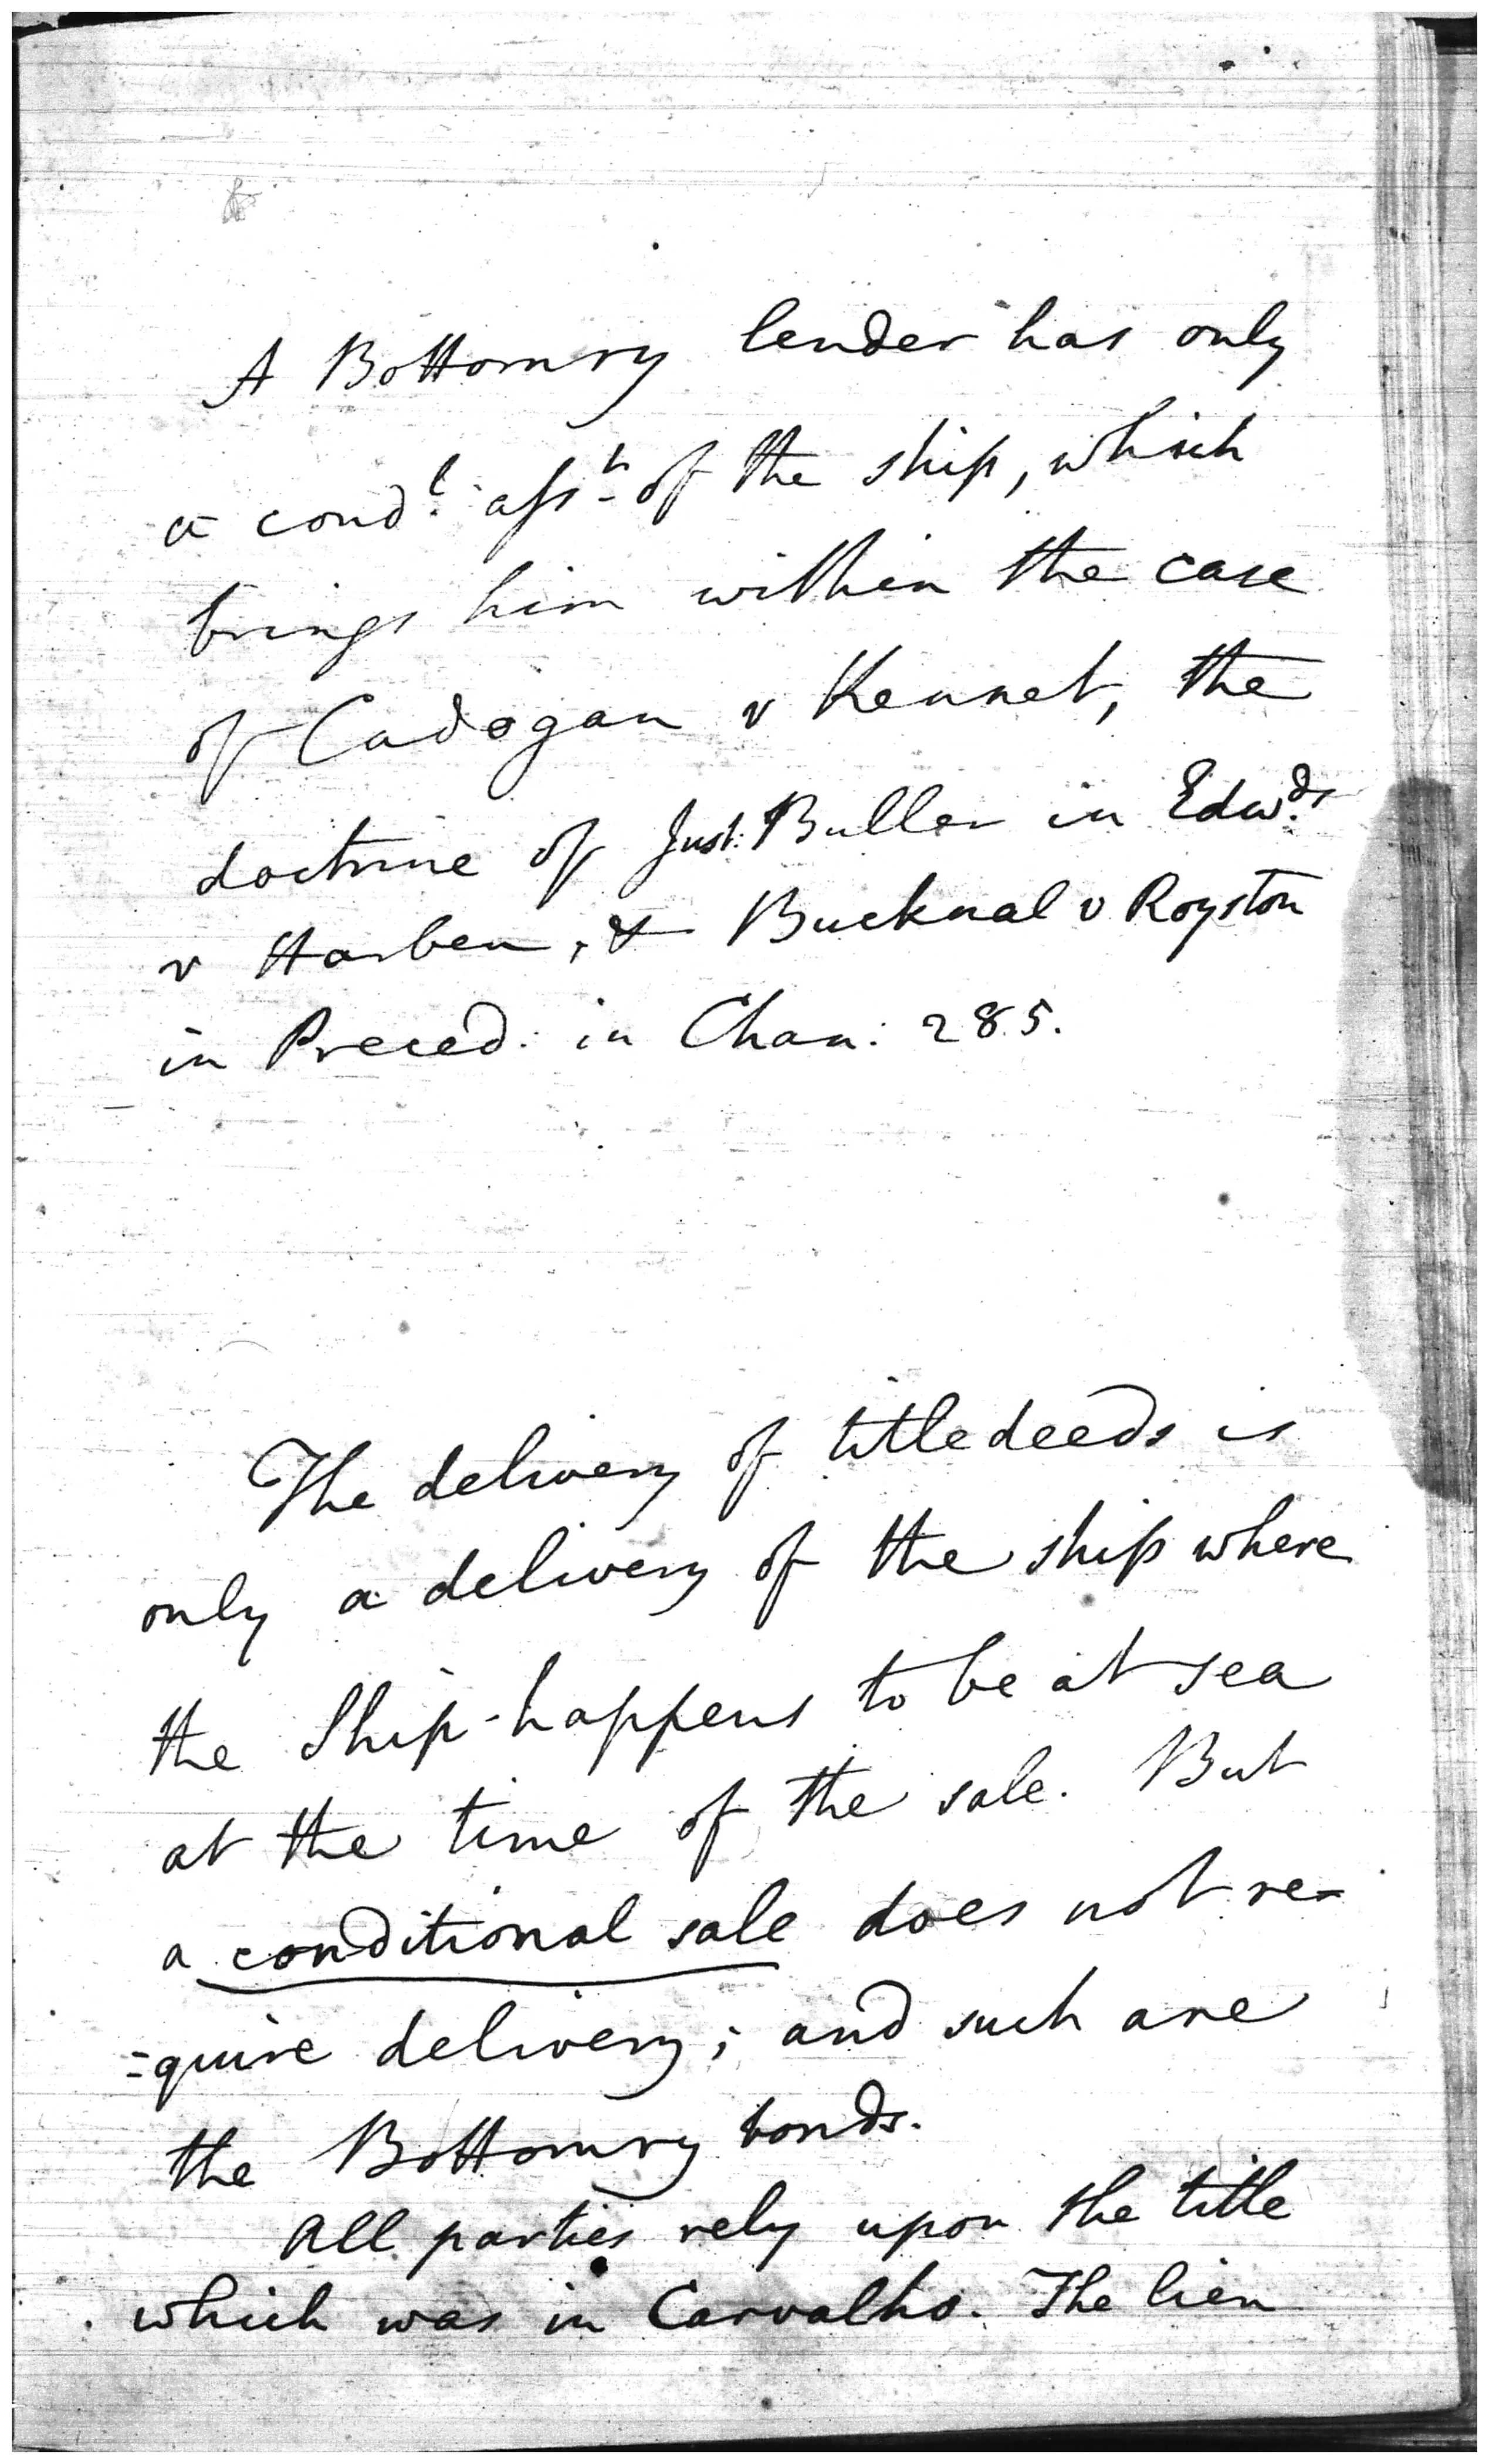 A Bottomry lender has only
a cond.l ass.n of the ship, which
brings him within the case
of Cadogan v Kennet, the
doctrine of Just: Buller in Edw.ds
v Harben, & Bucknal v Royston
in Preced: in Chan: 285.
The delivery of title deeds is
only a delivery of the ship where
the Ship happens to be at sea
at the time of the sale. But
a conditional sale does not re=
=quire delivery; and such are
the Bottomry bonds.
All parties rely upon the title
which was in Carvalho. The lien